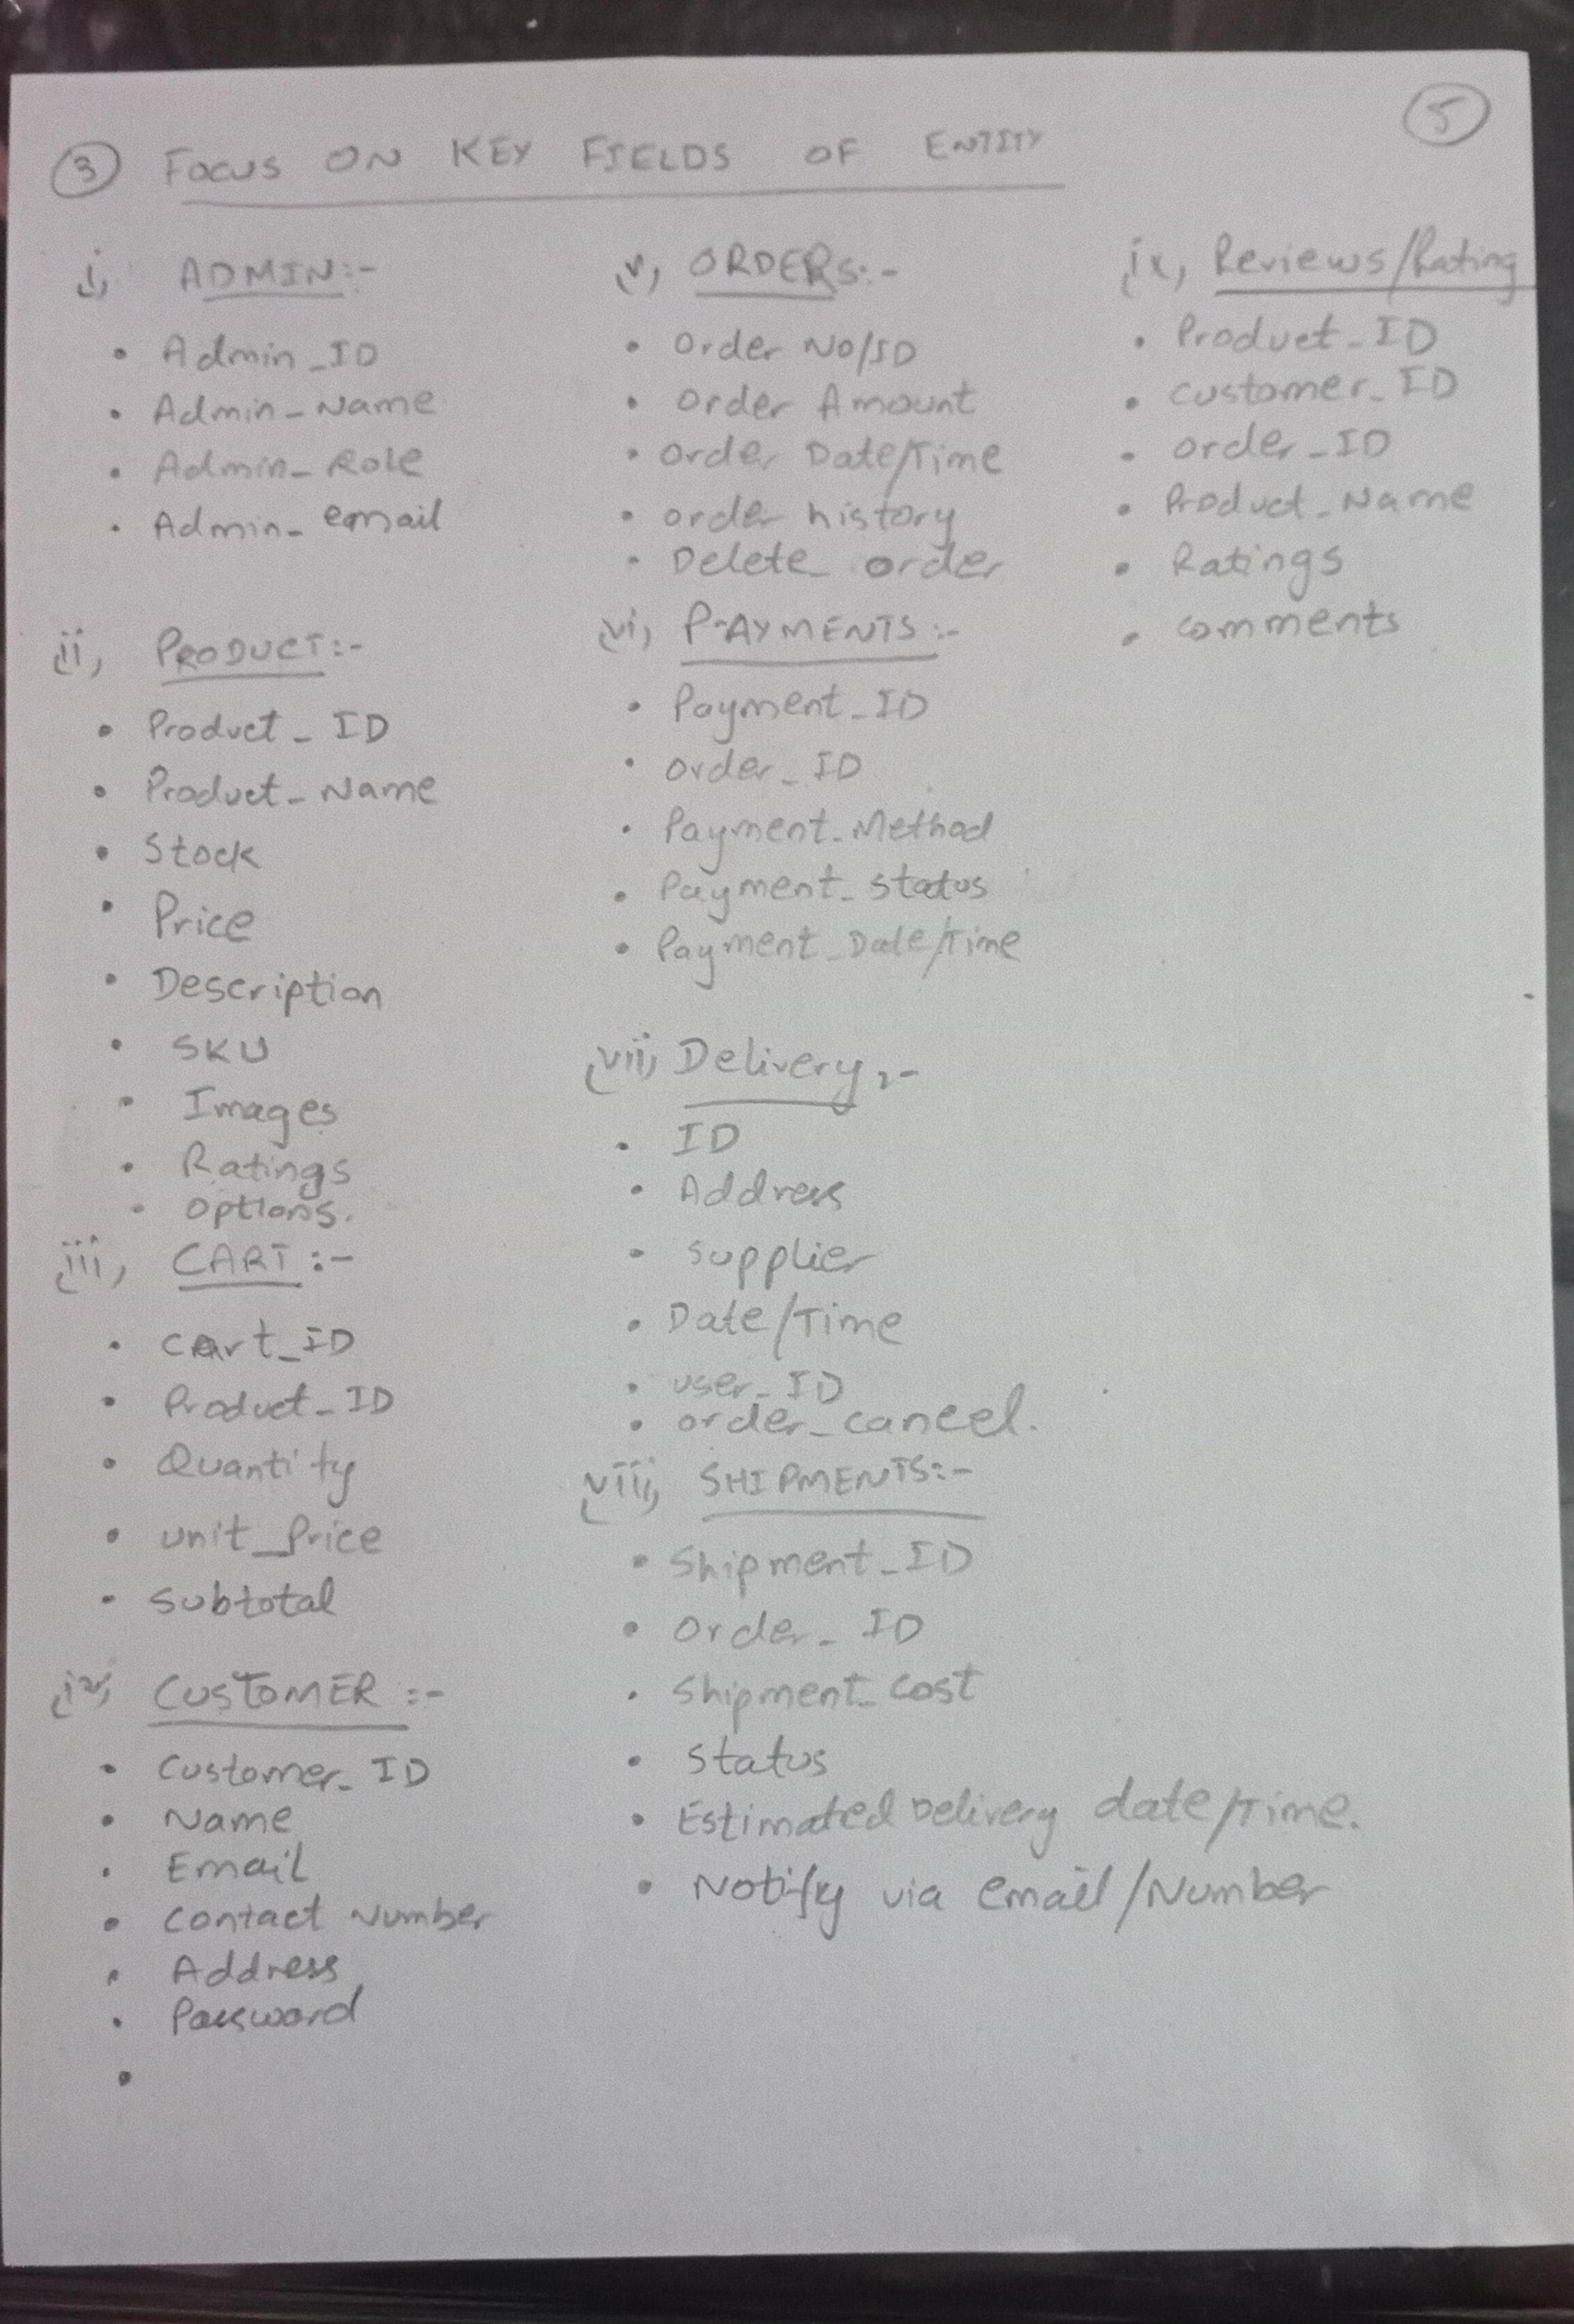 5
3 FOCUS ON KEY FIELDS OF ENTITY
i, ADMIN:-
• Admin_ID
• Admin_Name
• Admin_Role
• Admin_email
ii, PRODUCT:-
• Product_ID
• Product_Name
• Stock
• Price
• Description
• SKU
• Images
• Ratings
• options.
iii, CART:-
• Cart_ID
• Product_ID
• Quantity
• unit_Price
• Subtotal
iv, CUSTOMER:-
• Customer_ID
• Name
• Email
• Contact Number
• Address
• Password
•
v, ORDERs:-
• Order No/ID
• Order Amount
• Order Date/Time
• order history
• Delete order
vi, PAYMENTS:-
• Payment_ID
• order_ID
• Payment_Method
• Payment_status
• Payment_Date/Time
vii, Delivery:-
• ID
• Address
• Supplier
• Date/Time
• user_ID
• order_cancel.
viii, SHIPMENTS:-
• Shipment_ID
• Order_ID
• Shipment_Cost
• Status
• Estimated Delivery date/Time.
• Notify via email/Number
ix, Reviews/Rating
• Product_ID
• Customer_ID
• order_ID
• Product_Name
• Ratings
• comments